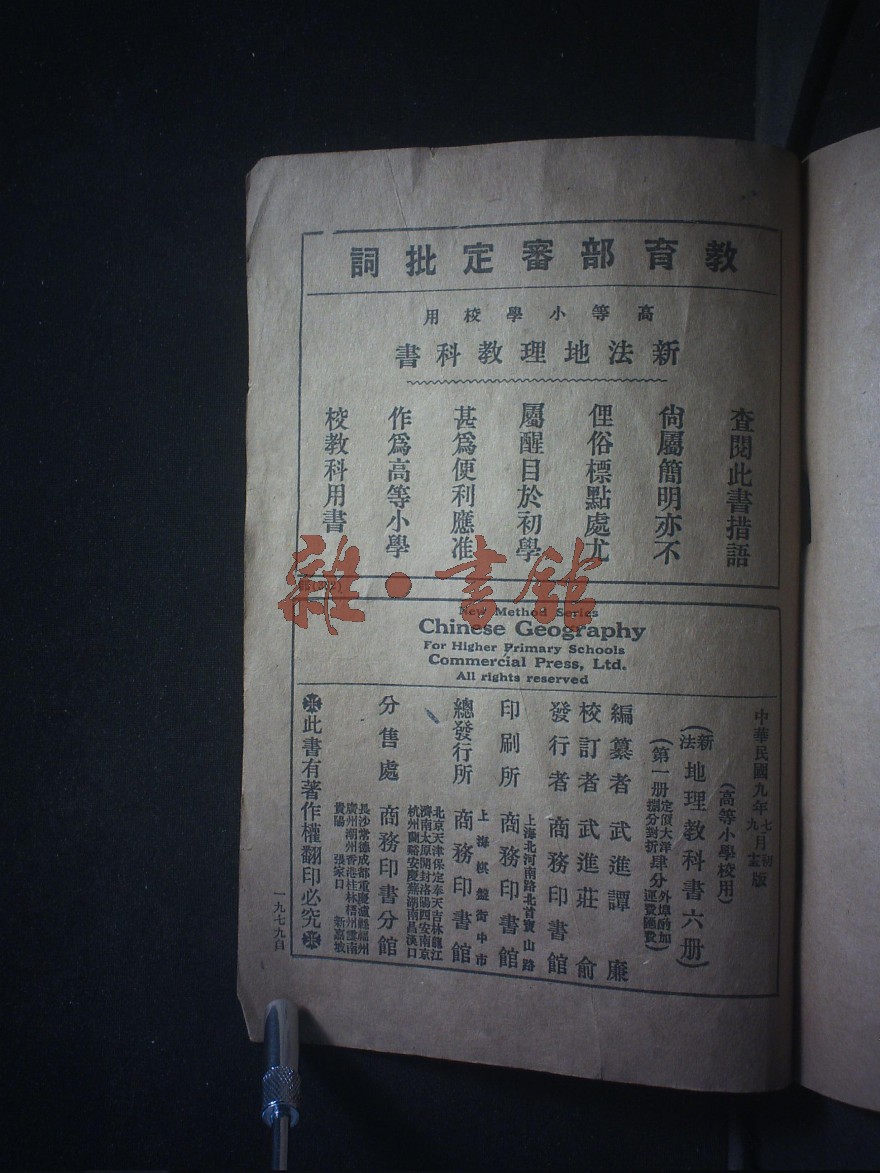 教育部審定批詞
高等小學校用
新法地理教科書
查閱此書措語
尙屬簡明亦不
俚俗標點處尤
屬醒目於初學
甚爲便利應准
作爲高等小學
校教科用書
雜·書館
New Method Series
Chinese Geography
For Higher Primary Schools
Commercial Press, Ltd.
All rights reserved
中華民國九年七月初版
九
(高等小學校用)
(新法地理教科書六册)
(第一册定價大洋肆分外埠酌加運費匯費)
編纂者 武進譚廉
校訂者 武進莊俞
發行者 商務印書館
印刷所 上海北河南路北首寶山路 商務印書館
總發行所 上海棋盤街中市 商務印書館
分售處 商務印書分館
北京天津保定奉天吉林龍江
濟南太原開封洛陽西安南京
杭州蘭谿安慶蕪湖南昌漢口
長沙常德成都重慶瀘縣福州
廣州潮州香港桂林梧州雲南
貴陽 張家口 新嘉坡
此書有著作權翻印必究
一九七九自